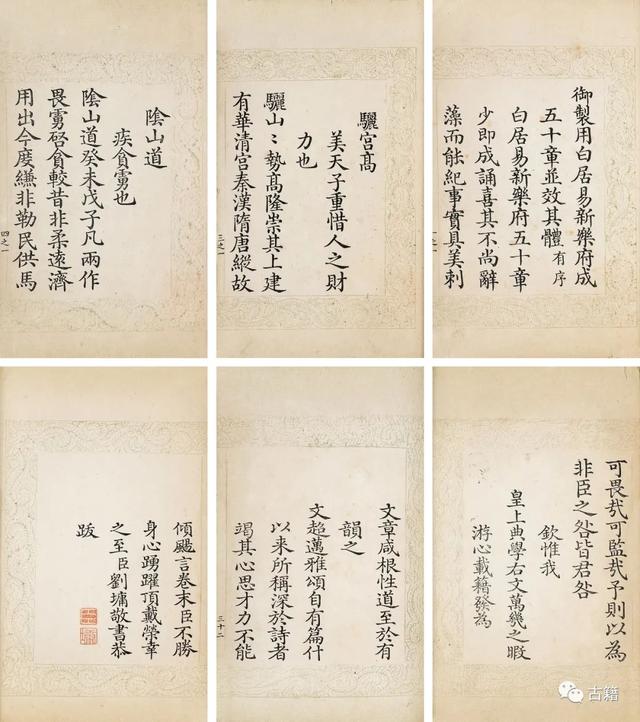 御製用白居易新樂府成
五十章並效其體有序
白居易新樂府五十章
少即成誦喜其不尚辭
藻而能紀事實具美刺
驪宮髙
美天子重惜人之財
力也
驪山〻勢髙隆崇其上建
有華清宮秦漢隋唐縱故
三之一
陰山道
疾貪虜也
陰山道癸未戊子凡兩作
畏虜啓貪較昔非柔遠濟
用出今度縑非勒民供馬
四之一
可畏㢤可監㢤予則以為
非臣之咎皆君咎
欽惟我
皇上典學右文萬幾之暇
游心載籍發為
文章咸根性道至於有
韻之
文超邁雅頌自有篇什
以来所稱深於詩者
竭其心思才力不能
三十二
傾颺言卷末臣不勝
身心踴躍頂戴榮幸
之至臣劉墉敬書恭
跋
古籍